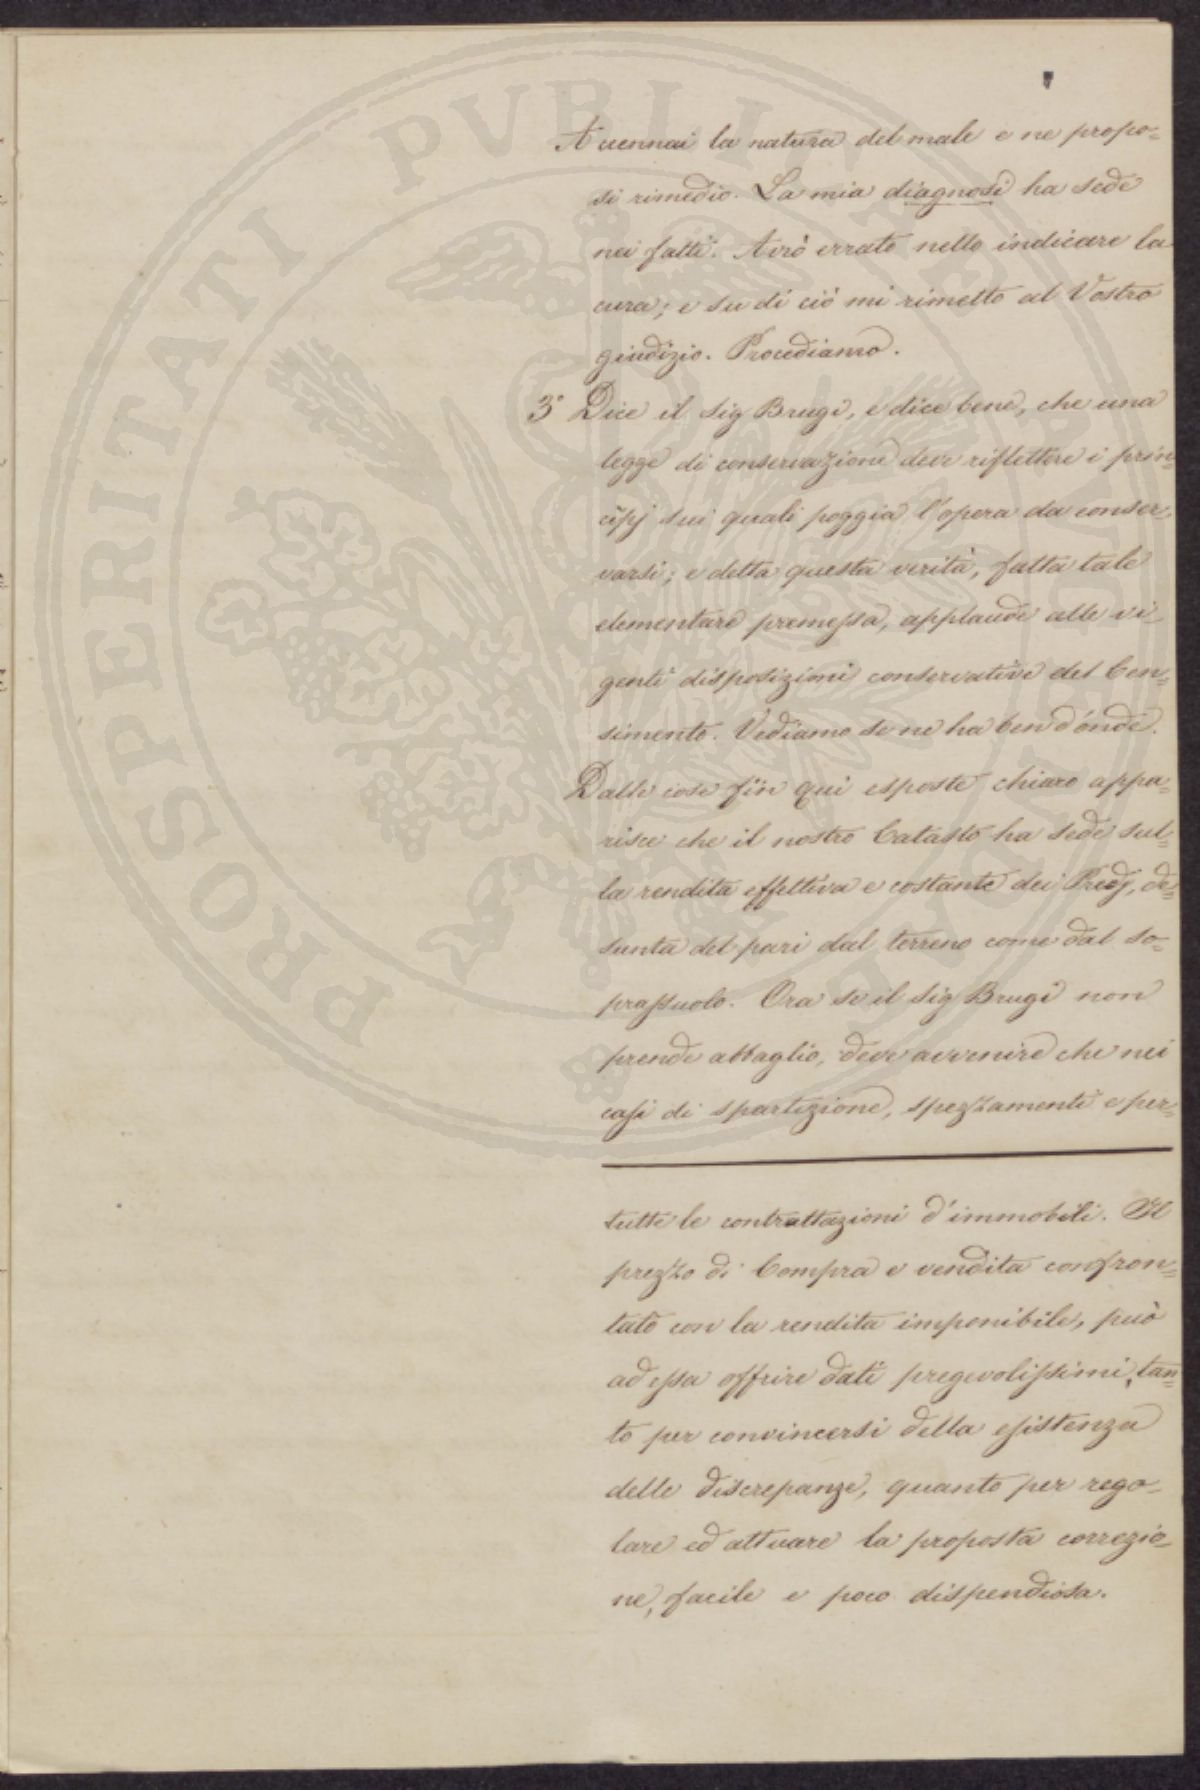 Accennai la natura del male e ne propo=
si rimedio. La mia diagnosi ha sede
nei fatti. Avrò errato nello indicare la
cura; e su di ciò mi rimetto al Vostro
giudizio. Procediamo.
3° Dice il Sig Brugi, e dice bene, che una
legge di conservazione deve riflettere i prin=
cipj sui quali poggia l'opera da conser=
varsi; e detta questa verità, fatta tale
elementare premessa, applaude alle vi=
genti disposizioni conservative del Cen=
simento. Vediamo se ne ha ben d'onde.
Dalle cose fin qui esposte chiaro appa=
risce che il nostro Catasto ha sede sul=
la rendita effettiva e costante dei Predj, de=
sunta del pari dal terreno come dal so=
prassuolo. Ora se il Sig Brugi non
prende abbaglio, deve avvenire che nei
casi di spartizione, spezzamenti e per=
tutte le contrattazioni d'immobili. Il
prezzo di Compra e vendita confron=
tato con la rendita imponibile, può
ad essa offrire dati pregevolissimi, tan=
to per convincersi della esistenza
delle discrepanze, quanto per rego=
lare ed attuare la proposta correzio=
ne, facile e poco dispendiosa.
PROSPERITATI PVBLICAE